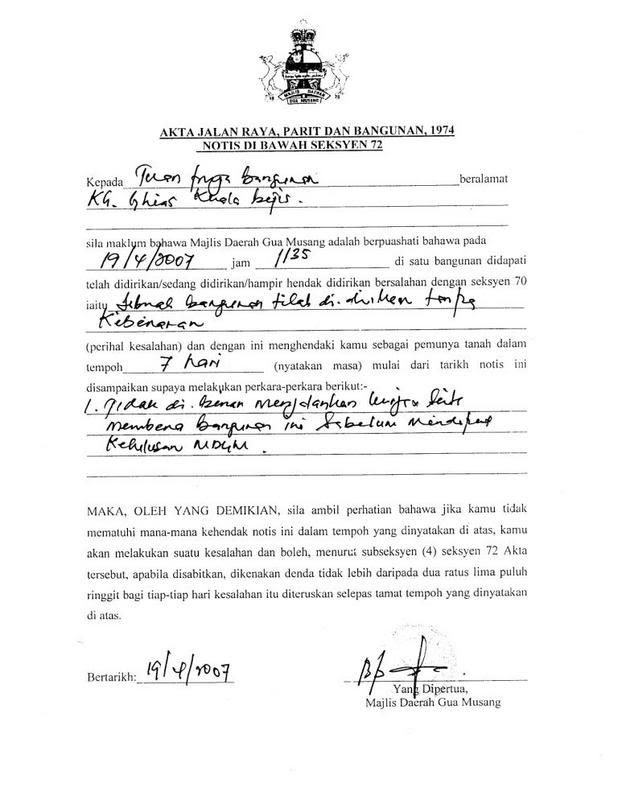 MAJLIS DAERAH
GUA MUSANG
AKTA JALAN RAYA, PARIT DAN BANGUNAN, 1974
NOTIS DI BAWAH SEKSYEN 72
Kepada Tuan bangunan beralamat
KG. Kuala
sila maklum bahawa Majlis Daerah Gua Musang adalah berpuashati bahawa pada
19/4/2007 jam 1135 di satu bangunan didapati
telah didirikan/sedang didirikan/hampir hendak didirikan bersalahan dengan seksyen 70
iaitu sebuah bangunan telah di. dirikan tanpa
Kebenaran
(perihal kesalahan) dan dengan ini menghendaki kamu sebagai pemunya tanah dalam
tempoh 7 hari (nyatakan masa) mulai dari tarikh notis ini
disampaikan supaya melakukan perkara-perkara berikut:-
1. Tidak di. benar menjalankan
membena bangunan ini sebelum mendapat
Kelulusan MDGM.
MAKA, OLEH YANG DEMIKIAN, sila ambil perhatian bahawa jika kamu tidak
mematuhi mana-mana kehendak notis ini dalam tempoh yang dinyatakan di atas, kamu
akan melakukan suatu kesalahan dan boleh, menurut subseksyen (4) seksyen 72 Akta
tersebut, apabila disabitkan, dikenakan denda tidak lebih daripada dua ratus lima puluh
ringgit bagi tiap-tiap hari kesalahan itu diteruskan selepas tamat tempoh yang dinyatakan
di atas.
Bertarikh: 19/4/2007
Yang Dipertua,
Majlis Daerah Gua Musang